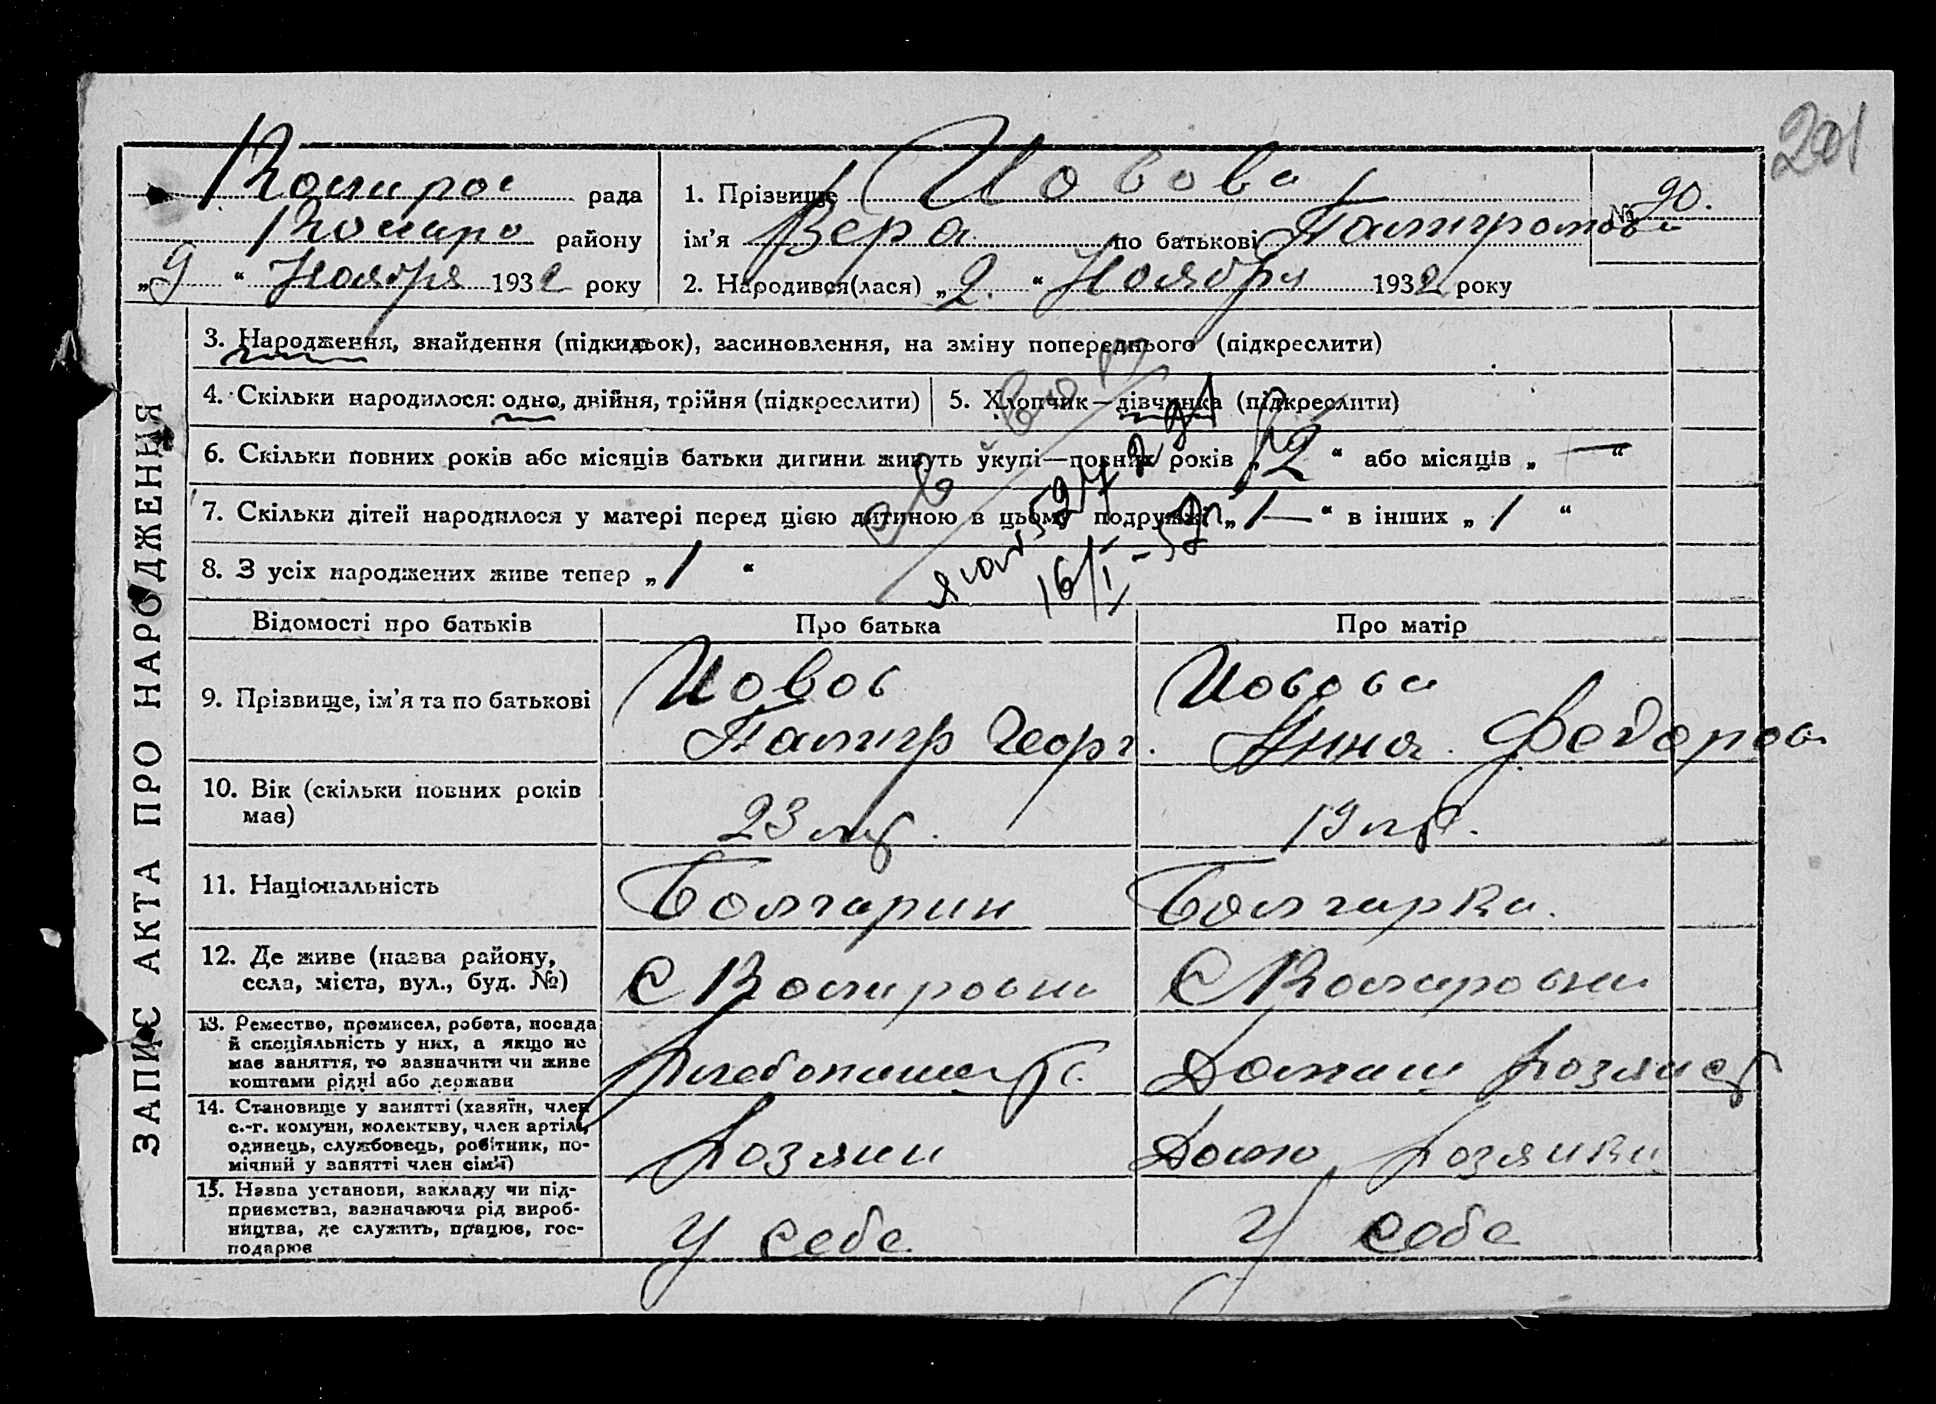 201
рада
1. Прізвище Иовова
№ 90.
району
ім'я Вера по батькові
„9“ Ноября 1932 року
2. Народився(лася) „2.“ Ноября 1932 року
ЗАПИС АКТА ПРО НАРОДЖЕННЯ
3. Народження, знайдення (підкидьок), засиновлення, на зміну попереднього (підкреслити)
4. Скільки народилося: одно, двійня, трійня (підкреслити)
5. Хлопчик—дівчинка (підкреслити)
6. Скільки повних років або місяців батьки дитини живуть укупі—повних років „2“ або місяців „—“
7. Скільки дітей народилося у матері перед цією дитиною в цьому подружжі „1—“ в інших „1“
8. З усіх народжених живе тепер „1“
16/I-52
Відомості про батьків
Про батька
Про матір
9. Прізвище, ім'я та по батькові
Иовов
Георг.
Иовова
Анна Федоров
10. Вік (скільки повних років
має)
23
19
11. Національність
Болгарин
Болгарка.
12. Де живе (назва району,
села, міста, вул., буд. №)
С
С
13. Ремество, промисел, робота, посада
й спеціяльність у них, а якщо не
має заняття, то зазначити чи живе
коштами рідні або держави
Домаш хозяйст
14. Становище у занятті (хазяїн, член
с.-г. комуни, колективу, член артілі,
одинець, службовець, робітник, по-
мічний у занятті член сім'ї)
хозяин
Дом хозяйка
15. Назва установи, закладу чи під-
приємства, вазначаючи рід вироб-
ництва, де служить, працює, гос-
подарює
У себе
У себе